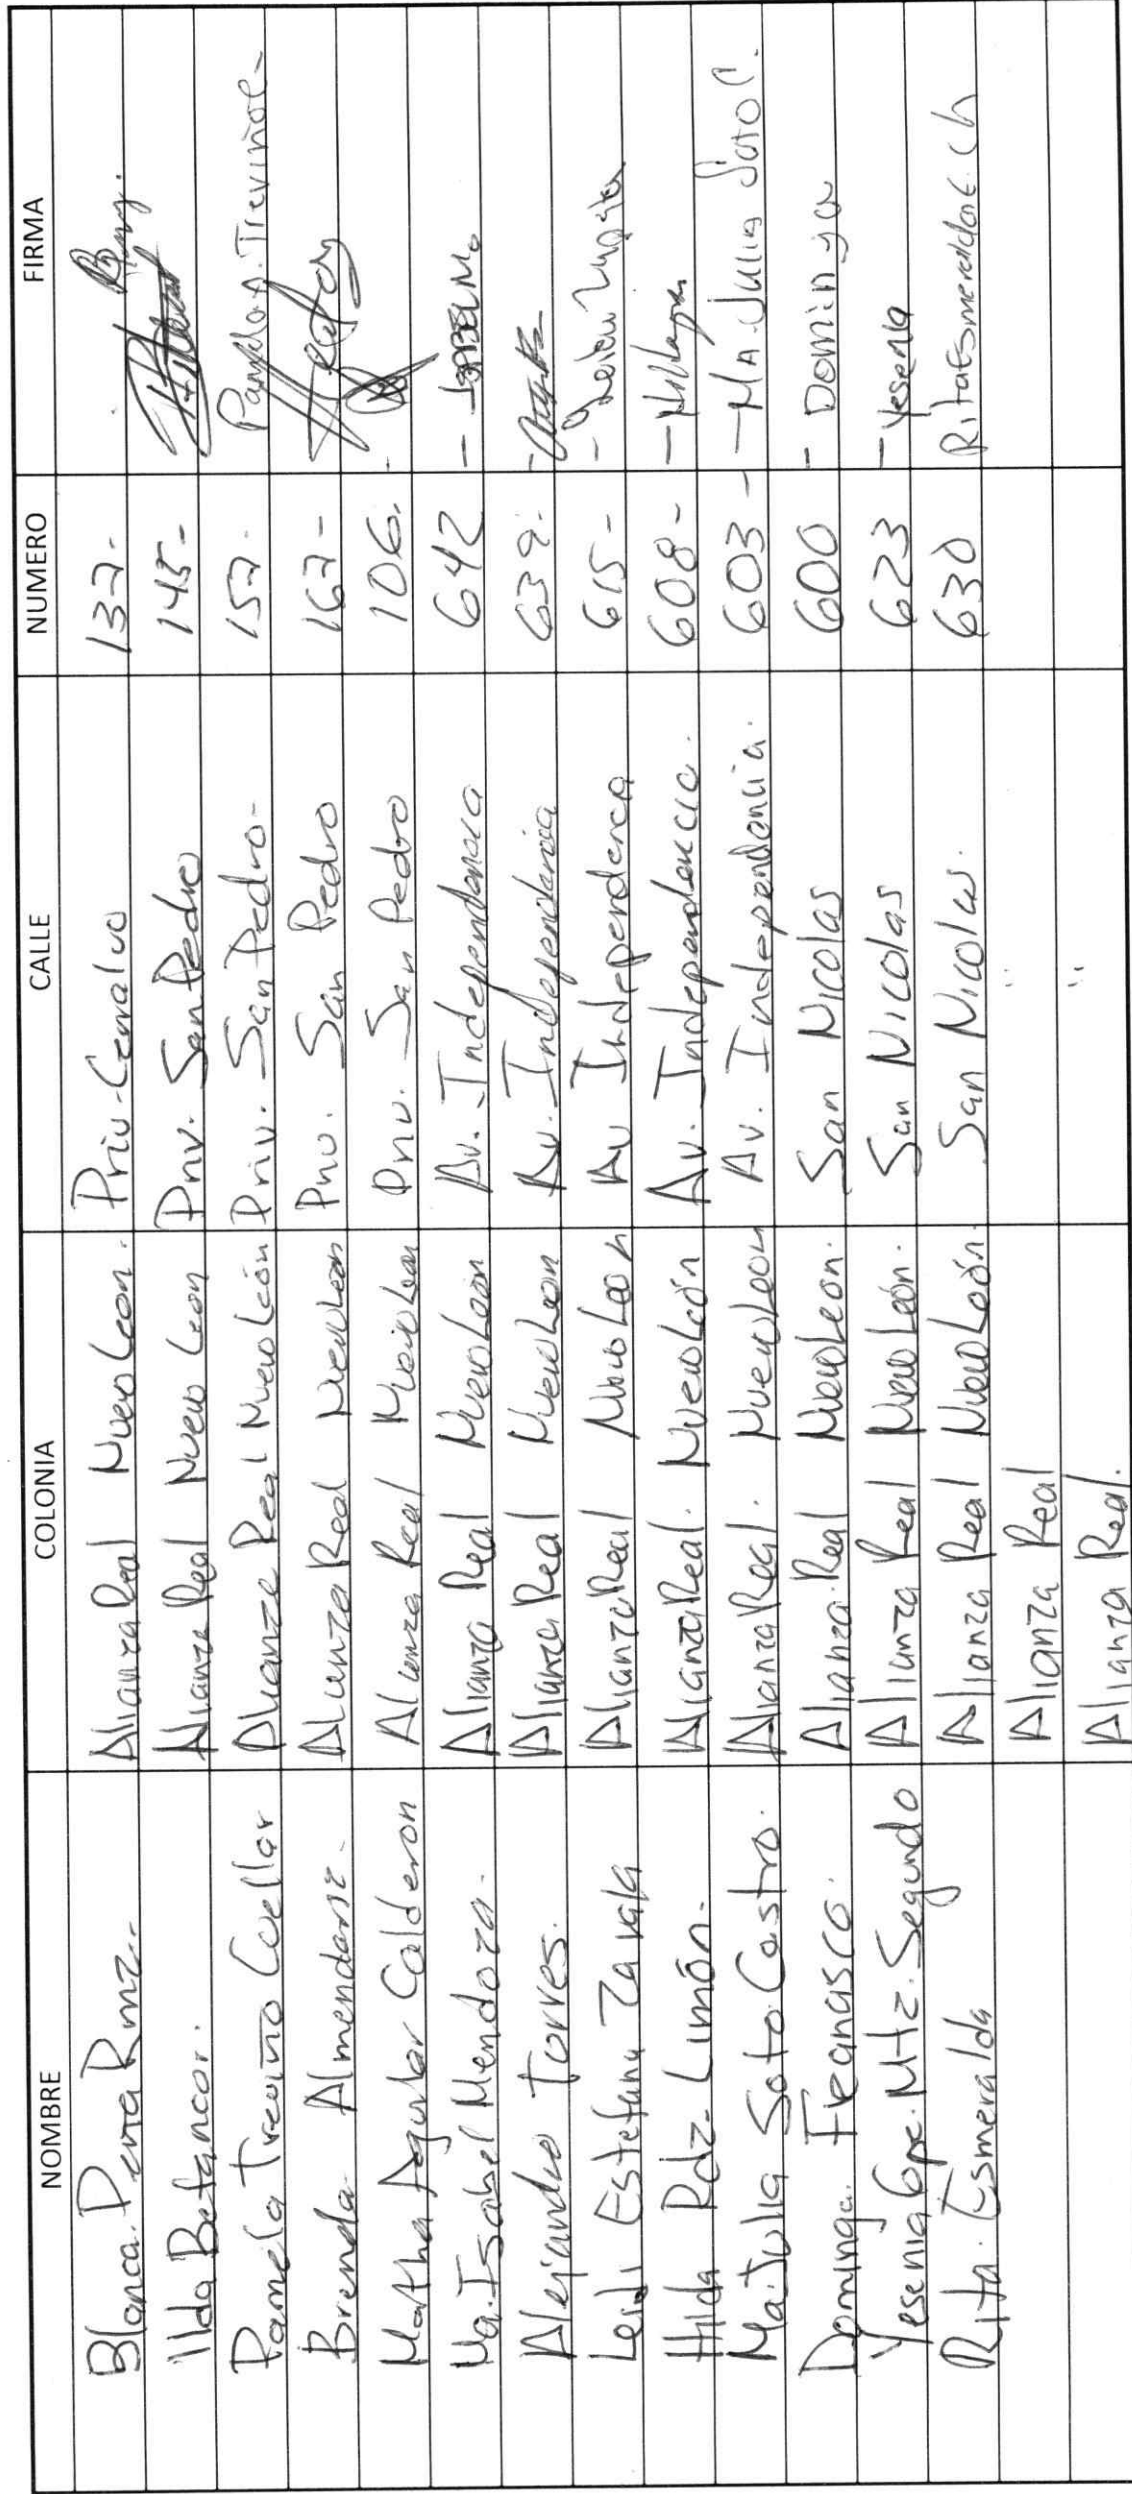 NOMBRE COLONIA CALLE NUMERO FIRMA
Blanca. Peña Rmz.. Alianza Real Nuevo Leon. Priv. Cerralvo 137-
Ilda Betancor. Alianza Real Nuevo Leon Priv. San Pedro 145-
Pamela Treviño Cuellar Alianza Real Nuevo León Priv. San Pedro- 157- Pamela. Treviño
Brenda Almendariz- Alianza Real Nuevo Leon Priv. San Pedro 167-
Martha Aguilar Calderon Alianza Real Nuevo Leon Priv. San Pedro 106.
Ma. Isabel Mendoza. Alianza Real Nuevo Leon Av. Independencia 642
Alejandro Torres. Alianza Real Nuevo Leon Av. Independencia 639.
Leidi Estefany Zavala Alianza Real Nuevo Leon Av Independencia 615-
Hilda Rdz. Limón. Alianza Real. Nuevo León Av. Independencia. 608-
Ma. Julia Soto Castro. Alianza Real. Nuevo Leon Av. Independencia. 603- -Ma. Julia Soto C.
Dominga. Francisco. Alianza. Real Nuevo Leon. San Nicolas 600 - Dominga
Yesenia Gpe. Mtz. Segundo Alianza Real Nuevo León. San Nicolas 623 - Yesenia
Rita. Esmeralda Alianza Real Nuevo León San Nicolas. 630 Rita Esmeralda
Alianza Real "
Alianza Real. "